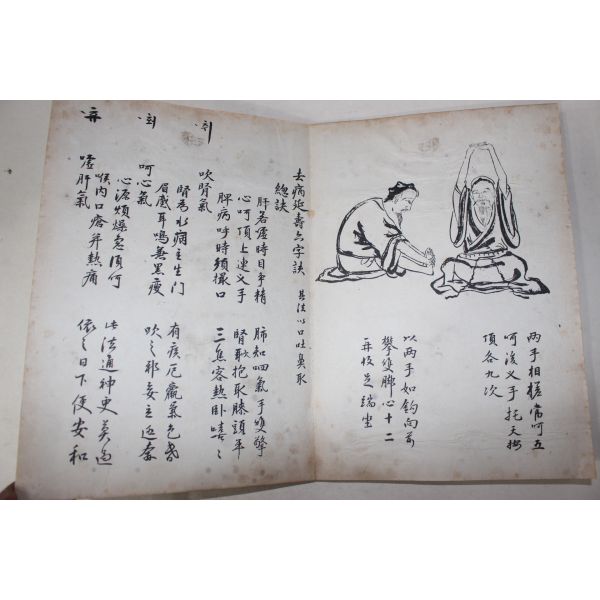 兩手相搓當呵五
呵後叉手托天按
頂各九次
以兩手如鉤向前
攀雙脚心十二
再收足端坐
去病延壽六字訣 其法以口吐鼻取
總訣
肝若噓時目爭精 肺知呬氣手雙擎
心呵頂上連叉手 腎吹抱取膝頭平
脾病呼時須撮口 三焦客熱卧嘻〻
吹腎氣
腎爲水病主生門 有疾尫羸氣色昏
眉蹙耳鳴兼黑瘦 吹之邪妄立逃奔
呵心氣
心源煩燥急須呵 此法通神更莫過
喉內口瘡并熱痛 依之日下便安和
噓肝氣